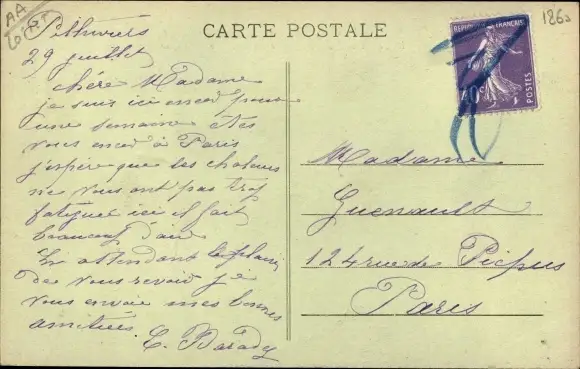 AA
CARTE POSTALE
186
REPUBLIQUE FRANÇAISE
40c
POSTES
Pithiviers
29 juillet
chère Madame
je suis ici encor pour
une semaine êtes
vous encor à Paris
j'espère que les chaleurs
ne vous ont pas trop
fatiguée ici il fait
beaucoup d'air
En attendant le plaisir
de vous revoir je
vous envoie mes bonnes
amitiées
Madame
Guenault
124 rue de Picpus
Paris